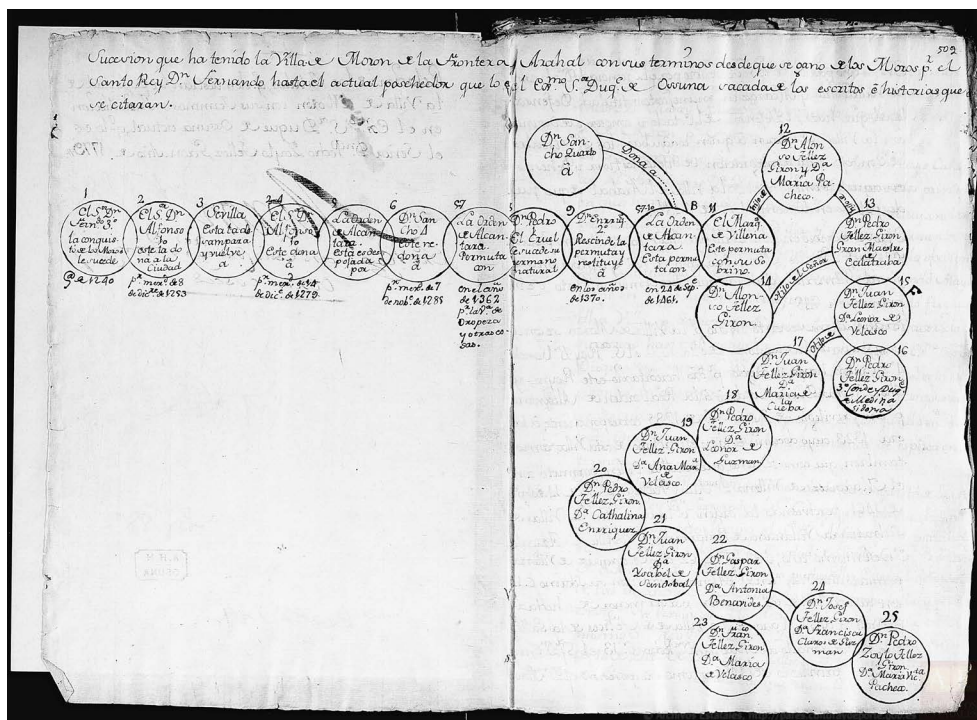 502
Sucesion que ha tenido la Villa de Moron de la Frontera y Arahal con sus terminos desde que se gano de los Moros p.r el
Santo Rey Dn. Fernando hasta el actual poshedor que lo es el Exmo. Sr. Duq.e de Ossuna sacada de los escritos é historias que
se citaran.
1
El S.r Dn
Fern.do 3.o
la conquis-
to de los Moros
le suede
a.o de 1240
2
El S.r Dn
Alfonso
10
este la do
na a la
Ciudad
p.r mer. de 8
de dic.re de 1253
3
Sevilla
Esta la des
campara
y vuelve
a
El S. Dn
Alfonso
10
Este dona
â
p.r mer. de 14
de Dic.e de 1279
5
La Orden
de Alcan
tara
Esta es des
pojada
por
6
Dn San
cho 4
Este re
dona
â
p.r mer. de 7
de nob.e de 1285
La Orden
de Alcan
tara
Permuta
con
en el año
de 1362
p.r la V.a de
Oropeza
y otras co-
sas.
Dn Pedro
El Cruel
sucede su
ermano
natural
9
Dn Enrriq.
2.o
Rescinde la
permuta y
restituye
â
en los años
de 1370.
La Orden
de Alcan-
tara
Esta permu
ta con
en 24 de Sep.e
de 1461.
Dn San-
cho Quarto
â
Dona a
11
El Marq.
de Villena
Este permuta
con su So
brino.
12
Dn Alon
so Tellez
Giron y Da
Maria Pa
checo.
13
Dn Pedro
Tellez Giron
Gran Maestre
de
Calatraba
14
Dn Alon-
so Tellez
Giron.
15
Dn Juan
Tellez Giron
Da Leonor de
Velasco
16
Dn Pedro
Tellez Giron
3.o Conde y Duq.e
de Medina
Sidonia
17
Dn Juan
Tellez Giron
Da
Maria de
la
Cueba
18
Dn Pedro
Tellez Giron
Da
Leonor de
Guzman
19
Dn Juan
Tellez Giron
Da Ana Mar.a
de
Velasco.
20
Dn Pedro
Tellez Giron.
Da Cathalina
Enrriquez
21
Dn Juan
Tellez Giron
Da
Ysabel de
Sandobal
22
Dn Gaspar
Tellez Giron
Da Antonia
Benavides
23
Dn Fran.co
Tellez Giron
Da Maria
de Velasco
24
Dn Josef
Tellez Giron
Da Francisca
Claros de Guz
man
25
Dn Pedro
Zoylo Tellez
Giron
Da Maria Vic.ta
Pacheco.